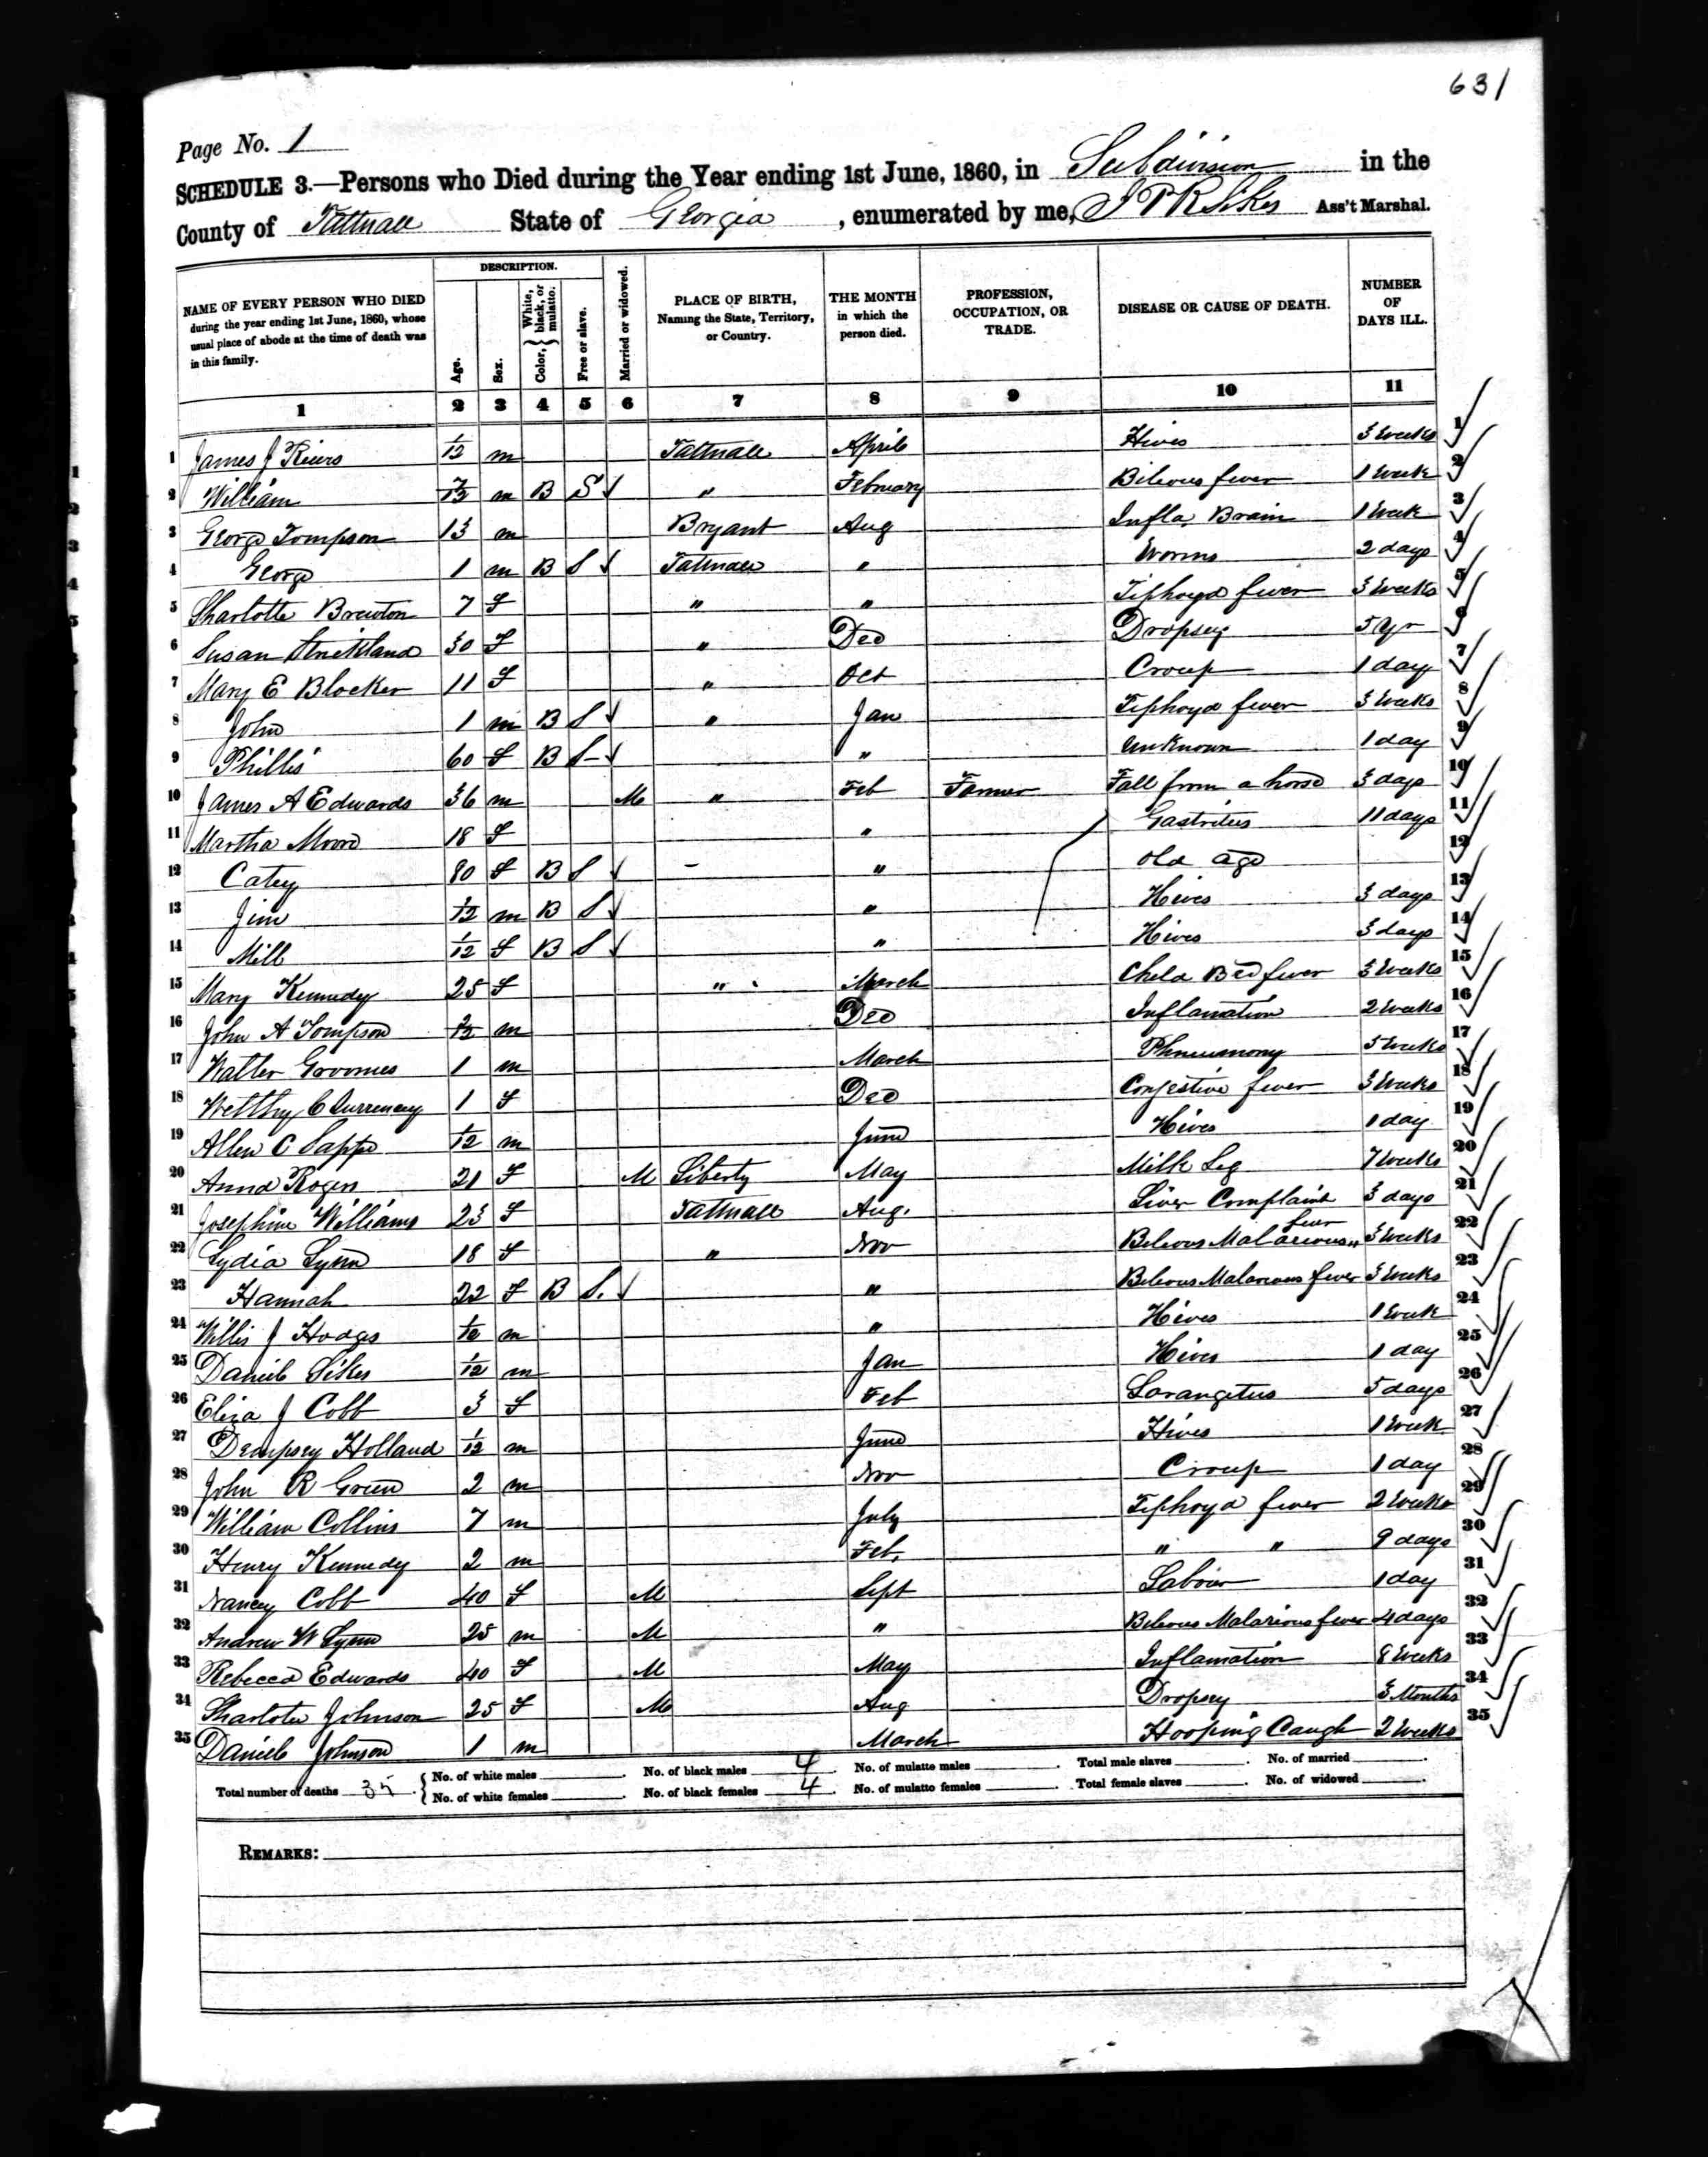 631
Page No. 1
SCHEDULE 3.—Persons who Died during the Year ending 1st June, 1860, in Subdivision in the
County of Tattnall State of Georgia, enumerated by me, J P R Sikes Ass't Marshal.
NAME OF EVERY PERSON WHO DIED during the year ending 1st June, 1860, whose usual place of abode at the time of death was in this family.
DESCRIPTION.
Age.
Sex.
Color, { White, black, or mulatto.
Free or slave.
Married or widowed.
PLACE OF BIRTH, Naming the State, Territory, or Country.
THE MONTH in which the person died.
PROFESSION, OCCUPATION, OR TRADE.
DISEASE OR CAUSE OF DEATH.
NUMBER OF DAYS ILL.
1 2 3 4 5 6 7 8 9 10 11
1 James J 1/12 m Tattnall April Hives 3 Weeks 1
2 William 7/12 m B S " February Bileous fever 1 Week 2
3 George Tompson 13 m Bryant Aug Infla, Brain 1 Week 3
4 George 1 m B S Tattnall " Worms 2 days 4
5 Sharlotte Brewton 7 F " " Tiphoyd fever 3 Weeks 5
6 Susan Strickland 30 F " Dec Dropsey 5 yr 6
7 Mary E Blocker 11 F " Oct Croup 1 day 7
8 John 1 m B S " Jan Tiphoyd fever 3 Weeks 8
9 Phillis 60 F B S " Unknown 1 day 9
10 James A Edwards 36 m M " Feb Farmer Fall from a horse 3 days 10
11 Martha Moore 18 F " Gastrites 11 days 11
12 Catey 80 F B S - " old age 12
13 Jim 1/12 m B S " Hives 3 days 13
14 Mill 1/12 F B S " Hives 3 days 14
15 Mary Kennedy 25 F " March Child Bed fever 3 Weeks 15
16 John A Tompson /12 m Dec Inflamation 2 Weeks 16
17 Walter Groomes 1 m March Phneumony 5 Weeks 17
18 Welthy C Surrency 1 F Dec Congestive fever 3 Weeks 18
19 Allen C Sapp 1/12 m June Hives 1 day 19
20 Anna Rogers 21 F M Liberty May Milk Leg 7 Weeks 20
21 Josephine Williams 23 F Tattnall Aug. Liver Complaint 3 days 21
22 Lydia Lynn 18 F " Nov Bileous Malarious fever 3 Weeks 22
23 Hannah 22 F B S. " Bileous Malarious fever 3 Weeks 23
24 Willis J Hodges m " Hives 1 Week 24
25 Daniel Sikes 1/12 m Jan Hives 1 day 25
26 Eliza J Cobb 3 F Feb Larangetus 5 days 26
27 Dempsey Holland 1/12 m June Hives 1 Week 27
28 John R Green 2 m Nov Croup 1 day 28
29 William Collins 7 m July Tiphoyd fever 2 Weeks 29
30 Henry Kennedy 2 m Feb. " " 9 days 30
31 Nancy Cobb 40 F M Sept Labour 1 day 31
32 Andrew W Lynn 25 m M " Bileous Malarious fever 4 days 32
33 Rebecca Edwards 40 F M May Inflamation 8 Weeks 33
34 Sharlotte Johnson 25 F M Aug Dropsey 3 Months 34
35 Daniel Johnson 1 m March Hooping Caugh 2 Weeks 35
Total number of deaths 35. { No. of white males . No. of black males 4. No. of mulatto males . Total male slaves . No. of married .
No. of white females . No. of black females 4. No. of mulatto females . Total female slaves . No. of widowed .
REMARKS: